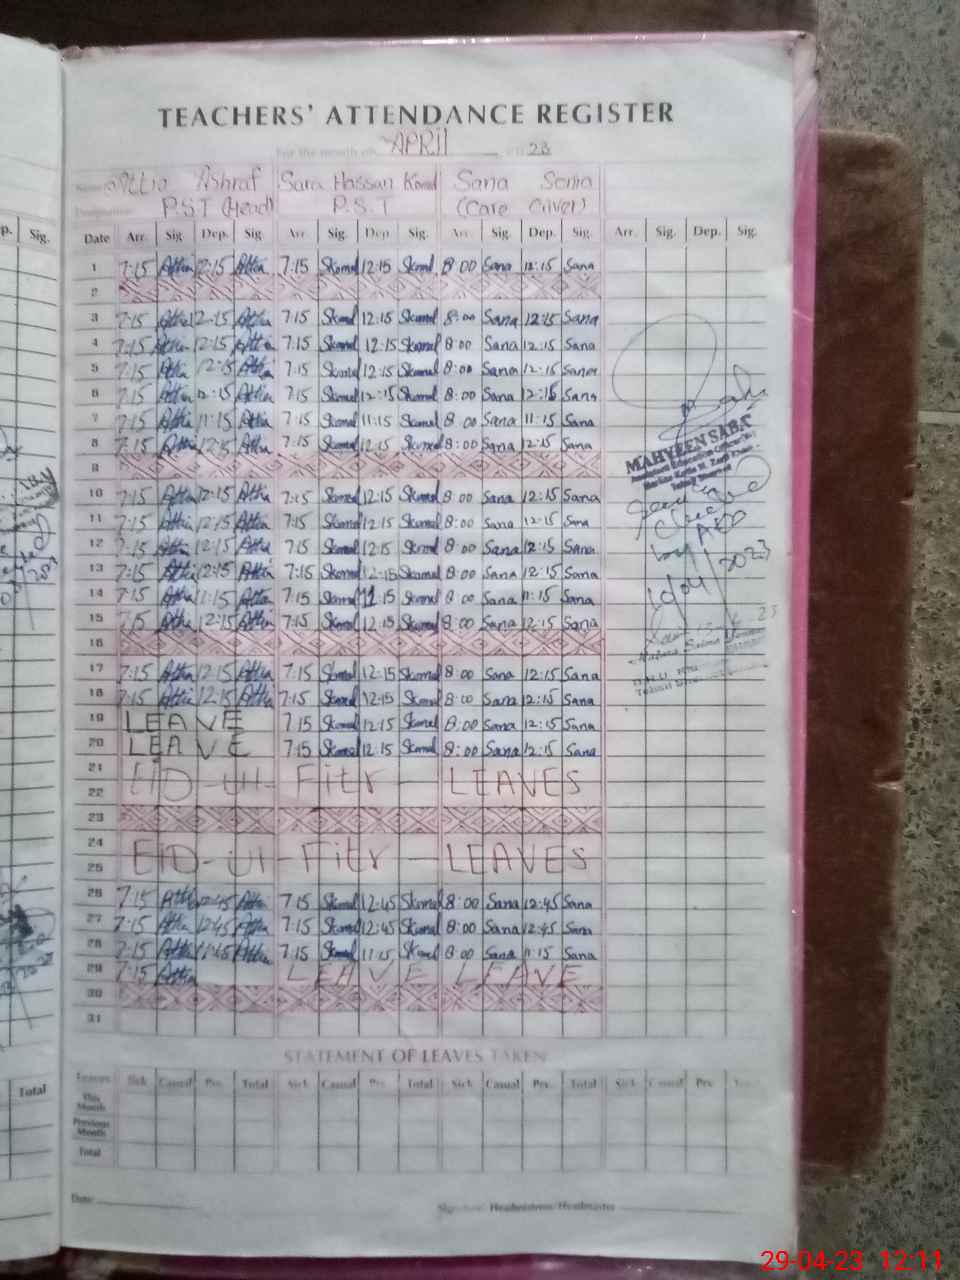 TEACHERS' ATTENDANCE REGISTER
For the month of APRIL 23
Attia Ashraf Sara Hassan Komal Sana Sonia
P.S.T (Head) P.S.T (Care Giver)
p. Sig. Date Arr. Sig. Dep. Sig. Arr. Sig. Dep. Sig. Arr. Sig. Dep. Sig. Arr. Sig. Dep. Sig.
1 7:15 Attia 12:15 Attia 7:15 Skomal 12:15 Skomal 8:00 Sana 12:15 Sana
2
3 7:15 Attia 12:15 Attia 7:15 Skomal 12:15 Skomal 8:00 Sana 12:15 Sana
4 7:15 Attia 12:15 Attia 7:15 Skomal 12:15 Skomal 8:00 Sana 12:15 Sana
5 7:15 Attia 12:15 Attia 7:15 Skomal 12:15 Skomal 8:00 Sana 12:15 Sana
6 7:15 Attia 12:15 Attia 7:15 Skomal 12:15 Skomal 8:00 Sana 12:15 Sana
7 7:15 Attia 11:15 Attia 7:15 Skomal 11:15 Skomal 8:00 Sana 11:15 Sana
8 7:15 Attia 12:15 Attia 7:15 Skomal 12:15 Skomal 8:00 Sana 12:15 Sana
9
MAHVEEN SABA
10 7:15 Attia 12:15 Attia 7:15 Skomal 12:15 Skomal 8:00 Sana 12:15 Sana
11 7:15 Attia 12:15 Attia 7:15 Skomal 12:15 Skomal 8:00 Sana 12:15 Sana
12 7:15 Attia 12:15 Attia 7:15 Skomal 12:15 Skomal 8:00 Sana 12:15 Sana
by AEO
13 7:15 Attia 12:15 Attia 7:15 Skomal 12:15 Skomal 8:00 Sana 12:15 Sana
14 7:15 Attia 11:15 Attia 7:15 Skomal 11:15 Skomal 8:00 Sana 11:15 Sana
2023
15 7:15 Attia 12:15 Attia 7:15 Skomal 12:15 Skomal 8:00 Sana 12:15 Sana
16
17 7:15 Attia 12:15 Attia 7:15 Skomal 12:15 Skomal 8:00 Sana 12:15 Sana
18 7:15 Attia 12:15 Attia 7:15 Skomal 12:15 Skomal 8:00 Sana 12:15 Sana
19 LEAVE 7:15 Skomal 12:15 Skomal 8:00 Sana 12:15 Sana
20 LEAVE 7:15 Skomal 12:15 Skomal 8:00 Sana 12:15 Sana
21
22 EID-Ul-Fitr-LEAVES
23
24
25 EID-Ul-Fitr-LEAVES
26 7:15 Attia 12:45 Attia 7:15 Skomal 12:45 Skomal 8:00 Sana 12:45 Sana
27 7:15 Attia 12:45 Attia 7:15 Skomal 12:45 Skomal 8:00 Sana 12:45 Sana
28 7:15 Attia 11:45 Attia 7:15 Skomal 11:15 Skomal 8:00 Sana 11:15 Sana
29 7:15 Attia LEAVE LEAVE
30
31
STATEMENT OF LEAVES TAKEN
Total Leaves Sick Casual Prv. Total Sick Casual Prv. Total Sick Casual Prv. Total Sick Casual Prv.
This Month
Previous Month
Total
Date
Signature Headmistress/Headmaster
29-04-23 12:11